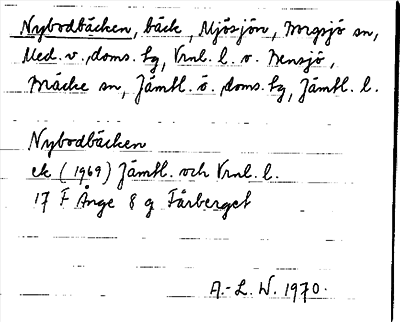 Nybodbäcken, bäck, Mjösjön, Borgsjö sn,
Med. v. doms. hg, Vrnl. l. o. Bensjö,
Bräcke sn, Jämtl. ö. doms. hg, Jämtl. l.
Nybodbäcken
ek (1969) Jämtl. och Vrnl. l.
17 F Ånge 8 g Fårberget
A.-L. W. 1970.